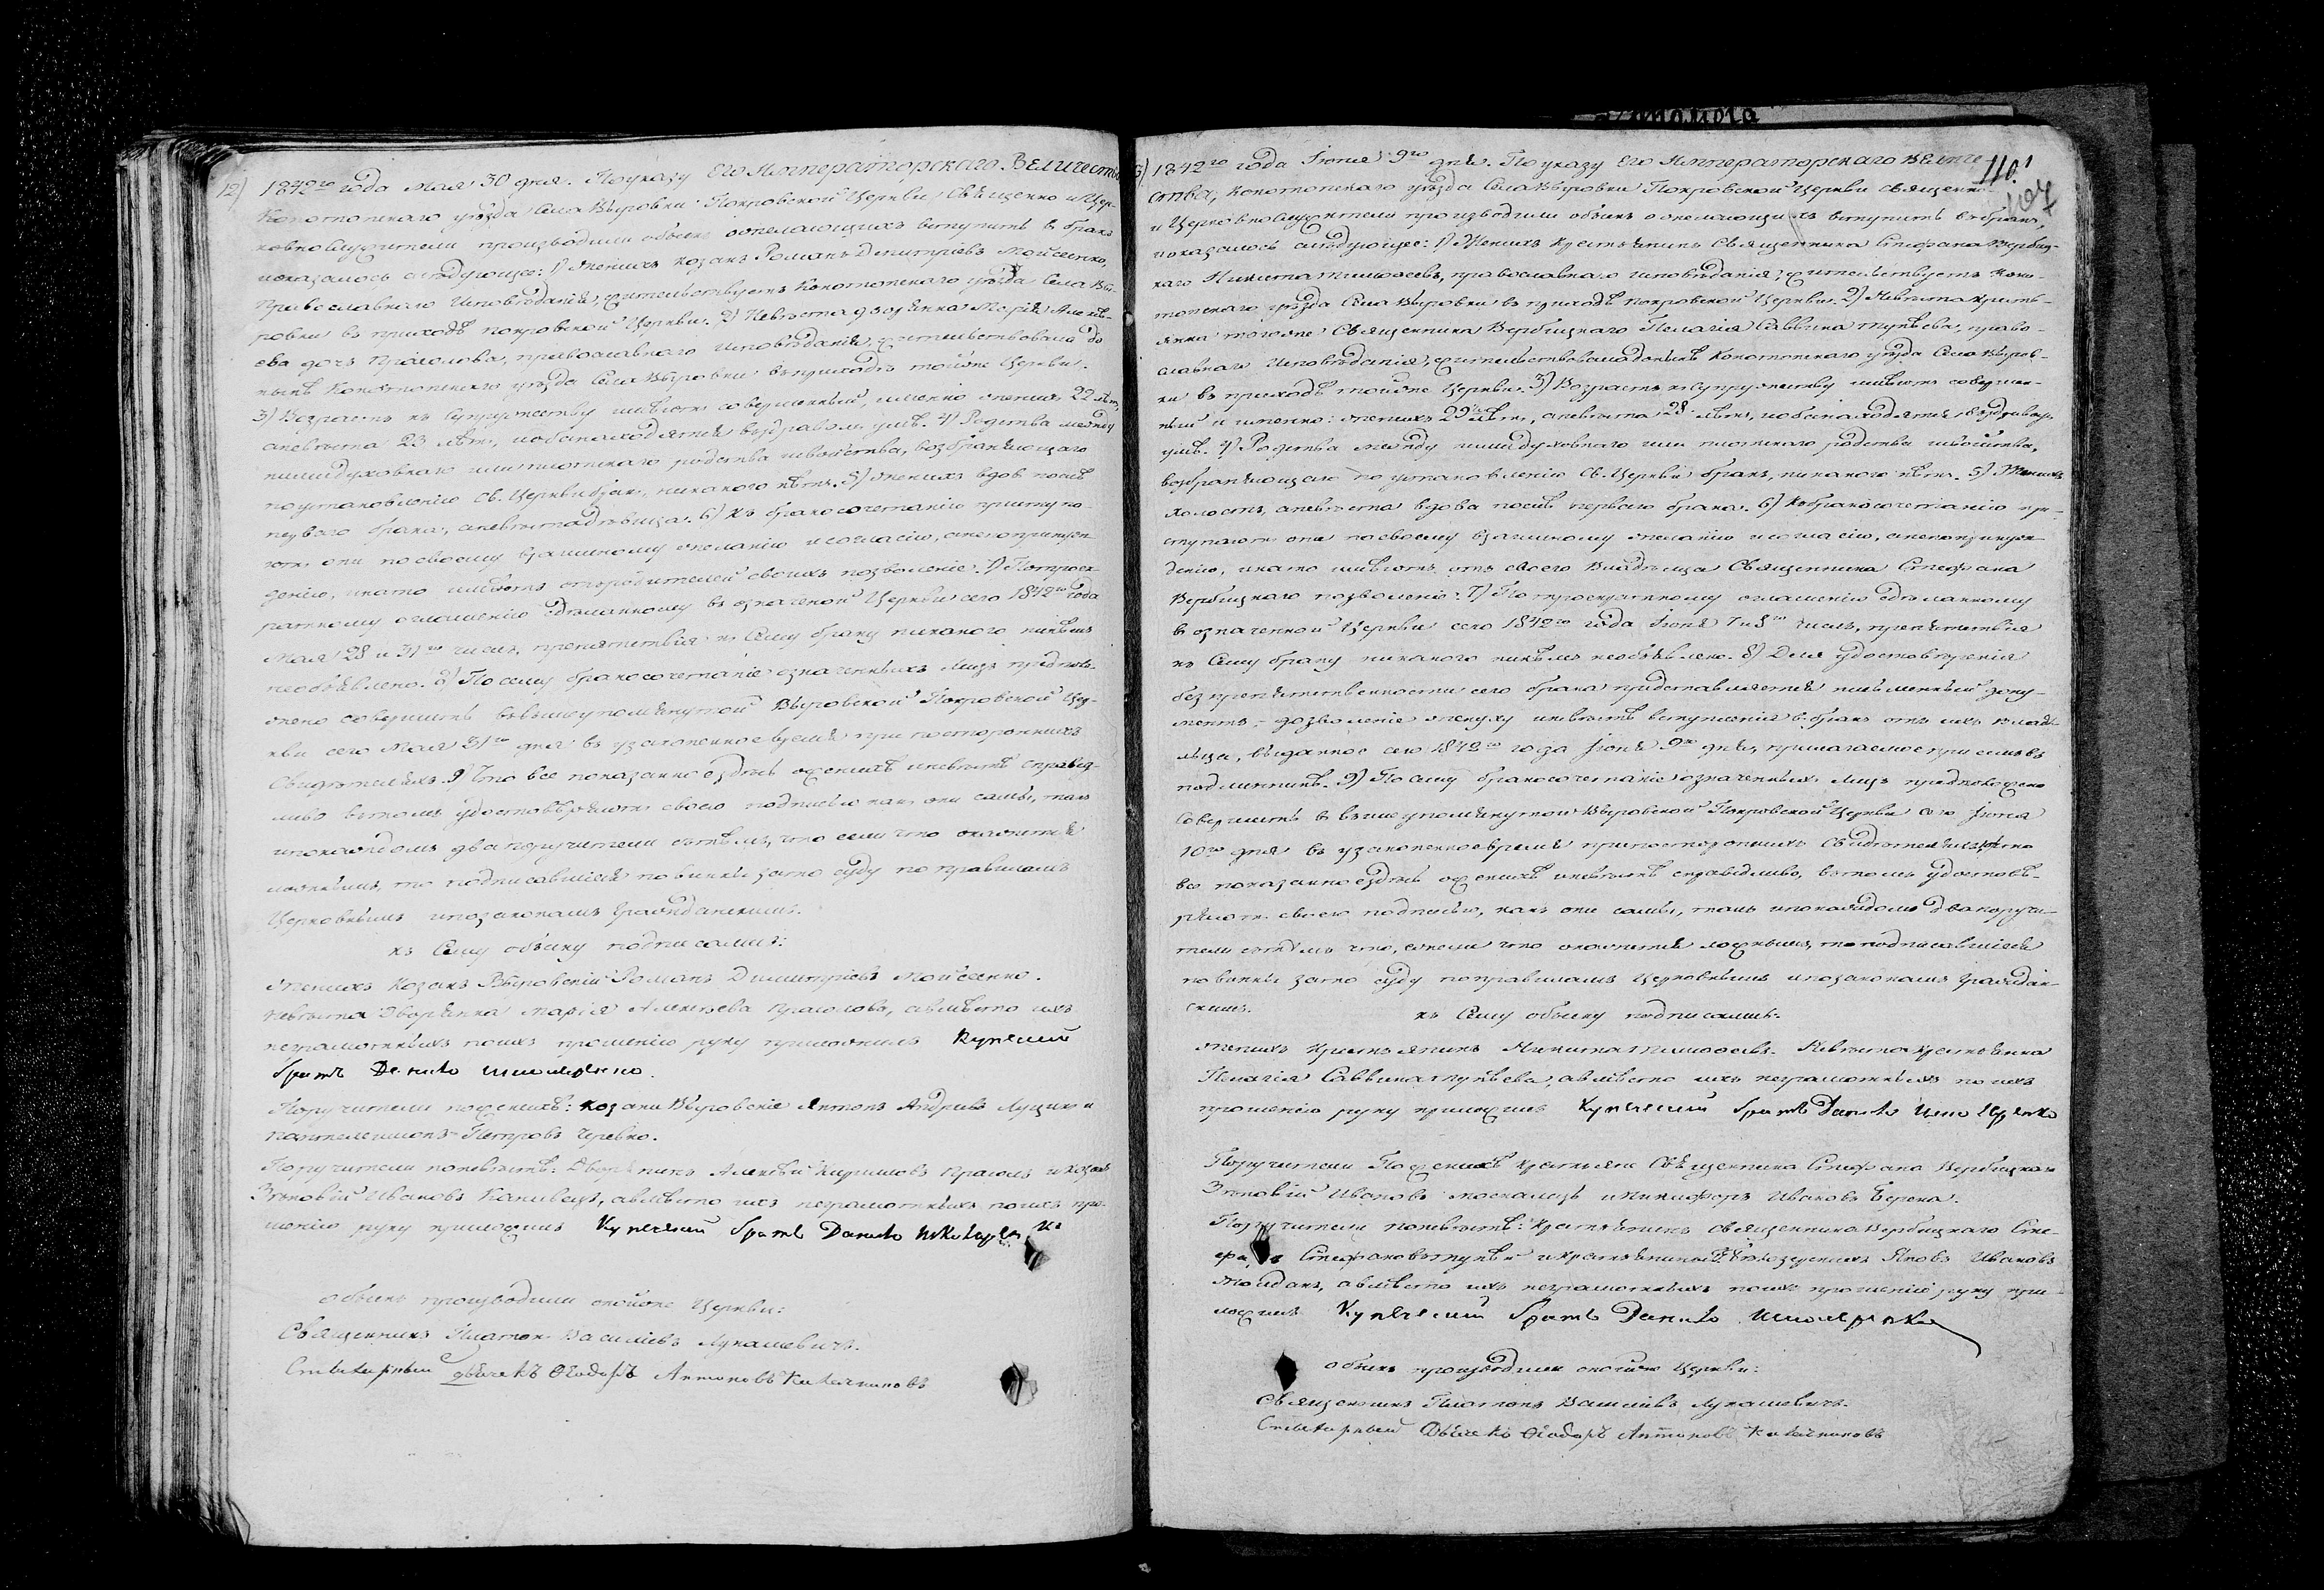 12) 1842го года мая 30 дня. По указу Его Императорскаго Величества
Конотопскаго уѣзда села Выровки Покровской Церкви Священно и Цер-
ковнослужители производили обыскъ о желающихъ вступить в бракъ
и оказалось слѣдующее: 1) Женихъ козакъ Романъ Димитріевъ Мойсеенко,
православнаго исповѣданія, жительствуетъ Конотопскаго уѣзда села Вы-
ровки въ приходѣ Покровской Церкви. 2) Невѣста дворянка Марія Алексѣ-
ева дочь православнаго исповѣданія, жительствовала до
нынѣ Конотопскаго уѣзда села Выровки въ приходѣ тойже Церкви.
3) Возрастъ къ супружеству имѣютъ совершенный, именно женихъ 22 лѣтъ,
а невѣста 23 лѣтъ, и оба находятся въ здравомъ умѣ. 4) Родства между
ними духовнаго или плотскаго родства и свойства, возбраняющаго
по установленію Св. Церкви бракъ, никакого нѣтъ. 5) Женихъ вдов послѣ
перваго брака, а невѣста дѣвица. 6) Къ бракосочетанію приступа-
ютъ они по своему взаимному желанію и согласію, а не по принуж-
денію, и на то имѣютъ отъ родителей своихъ позволеніе. 7) По троек-
ратному оглашенію сдѣланному въ означеной Церкви сего 1842го года
мая 28 и 31го числъ, препятствія къ сему браку никакого никѣмъ
необъявлено. 8) По сему бракосочетаніе означенныхъ лицъ предполо-
жено совершить въ вышеупомянутой Выровской Покровской Цер-
кви сего мая 31го дня въ узаконенное время при постороннихъ
свидѣтеляхъ. 9) Что все показанное здѣсь о женихѣ и невѣстѣ справед-
ливо въ томъ удостовѣряютъ своею подписью какъ они сами, такъ
и по каждомъ два поручители съ тѣмъ, что если что окажется
ложнымъ, то подписавшіеся повинны за то суду по правиламъ
Церковнымъ и по законамъ гражданскимъ.
къ сему обыску подписались:
Женихъ Козакъ Выровскій Романъ Димитріевъ Мойсеенко.
Невѣста дворянка Марія Алексѣева а вмѣсто ихъ
неграмотныхъ по ихъ прошенію руку приложилъ Купеческий
братъ Данило
Поручители по женихѣ: козаки Выровскіе Антонъ Андріевъ Луцик и
Пантелеимонъ Петровъ Черевко.
Поручители по невѣстѣ: Дворянинъ Алексѣй Кириловъ и козакъ
Зѣновій Ивановъ Канивецъ, а вмѣсто ихъ неграмотныхъ по ихъ про-
шенію руку приложилъ Купеческий братъ Данило
обыскъ производили онойже Церкви:
Священникъ Платонъ Василіевъ Лукашевичъ.
дьячекъ Ѳеодоръ Антоновъ
110
107
1842го года Іюня 9го дня. По указу Его Императорскаго Величе-
ства, Конотопскаго уѣзда села Выровки Покровской Церкви священно-
и Церковнослужители производили обыскъ о желающихъ вступить въ бракъ,
и оказалось слѣдующее: 1) Женихъ крестьянинъ Священника Стефана Вербиц-
каго Никита Тимофеевъ, православнаго исповѣданія, жительствуетъ Коно-
топскаго уѣзда села Выровки въ приходѣ Покровской Церкви. 2) Невѣста кресть-
янка тогоже Священника Вербицкаго Пелагія Саввина право-
славнаго исповѣданія, жительствовала донынѣ Конотопскаго уѣзда села Выров-
ки въ приходѣ тойже Церкви. 3) Возрастъ къ супружеству имѣютъ совершен-
ный и именно: женихъ 29 лѣтъ, а невѣста 28 лѣтъ, и оба находятся въ здравомъ
умѣ. 4) Родства между ними духовнаго или плотскаго родства и свойства,
возбраняющаго по установленію Св. Церкви бракъ, никакого нѣтъ. 5) Женихъ
холостъ, а невѣста вдова послѣ перваго брака. 6) Къ бракосочетанію при-
ступаютъ они по своему взаимному желанію и согласію, а не по принуж-
денію, и на то имѣютъ отъ своего Владѣльца Священника Стефана
Вербицкаго позволеніе. 7) По троекратному оглашенію сдѣланному
в означенной Церкви сего 1842го года Іюня 7 и 8го числъ, препятствія
къ сему браку никакого никѣмъ необъявлено. 8) Для удостовѣренія
безпрепятственности сего брака представляется письменный доку-
ментъ, – дозволеніе жениху и невѣстѣ вступленія в бракъ отъ ихъ владѣ-
льца, выданное сего 1842го года Іюня 9го дня, прилагаемое при семъ въ
подлинникѣ. 9) По сему бракосочетаніе означенныхъ лицъ предположено
совершить в вышеупомянутой Выровской Покровской Церкви сего Іюня
10го дня въ узаконенное время при постороннихъ свидѣтеляхъ что
все показанное здѣсь о женихѣ и невѣстѣ справедливо, въ томъ удостовѣ-
ряютъ своею подписью, какъ они сами, такъ и по каждомъ два поручи-
тели съ тѣмъ что, если что окажется ложнымъ, то подписавшіеся
повинны за то суду по правиламъ Церковнымъ и по законамъ граждан-
скимъ.
къ сему обыску подписались:
Женихъ крестьянинъ Никита Тимофеевъ. Невѣста крестьянка
Пелагія Саввина а вмѣсто ихъ неграмотныхъ по ихъ
прошенію руку приложилъ Купеческий братъ Данило
Поручители По женихѣ крестьяне Священника Стефана Вербицкаго
Зѣновій Ивановъ Москалецъ и Никифоръ Ивановъ Берека.
Поручители по невѣстѣ: крестьянинъ священника Вербицкаго Сте-
фанъ Стефановъ и крестьянинъ Яковъ Ивановъ
а вмѣсто ихъ неграмотныхъ по ихъ прошенію руку при-
ложилъ Купеческий братъ Данило
обыскъ производили онойже Церкви:
Священникъ Платонъ Василіевъ Лукашевичъ.
Дьячекъ Ѳеодоръ Антоновъ